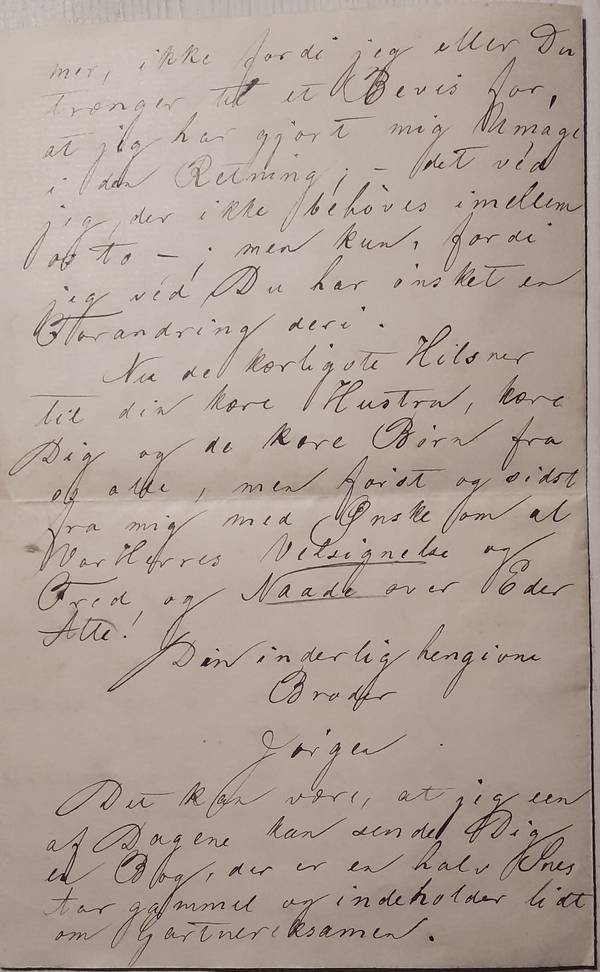 mer, ikke fordi jeg eller Du
trænger til et Bevis for,
at jeg har gjort mig Umage
i den Retning; – det véd
jeg, der ikke behöves imellem
os to – ; men kun, fordi
jeg véd, Du har ønsket en
Forandring deri.
Nu de kærligste Hilsner
til din kære Hustru, kære
Dig og de kære Børn fra
os alle, men først og sidst
fra mig med Ønske om at
Vor Herres Velsignelse og
Fred og Naade over Eder
Alle!
Din inderlig hengivne
Broder
Jørgen
Det kan være, at jeg een
af Dagene kan sende Dig
en Bog, der er en halv Snes
Aar gammel og indeholder lidt
om Gartnereksamen.